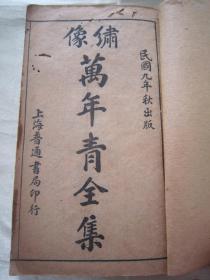 民國九年秋出版
繡像
萬年青全集
上海普通書局印行